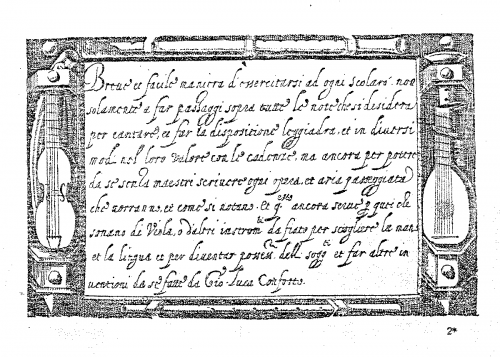 Breue et facile maniera d'essercitarsi ad ogni scolaro. non
solamente a far passaggi sopra tutte le note che si desidera
per cantare, et far la dispositione leggiadra, et in diuersi
modi nel loro ualore con le cadenze, ma ancora per potere
da se senza maestri scriuere ogni opera, et aria passeggiata
che uorranno, et come si notano. Et q.sto ancora serue p quei che
sonano di Viola, o d'altri instrom.ti da fiato per sciogliere la mano
et la lingua et per diuentar possess. delli sogg.ti et far altre in
uentioni da se fatte da Gio. Luca Conforto.
2*